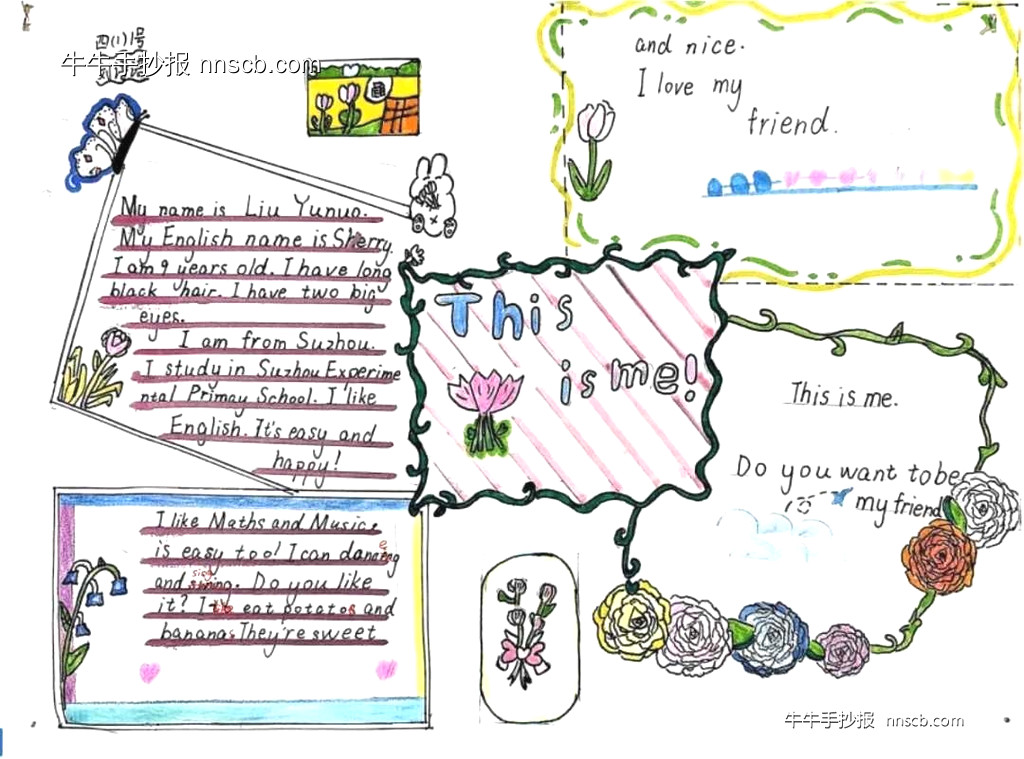 四(1)1号
牛牛手抄报 nnscb.com
My name is Liu Yunuo.
My English name is Sherry.
I am 9 years old. I have long
black hair. I have two big
eyes.
I am from Suzhou.
I study in Suzhou Experime
ntal Primay School. I like
English. It's easy and
happy!
I like Maths and Music,
is easy too! I can dancing
and sining. Do you like
it? I eat potatos and
bananas. They're sweet
and nice.
I love my
friend.
This
is me!
This is me.
Do you want tobe
my friend
牛牛手抄报 nnscb.com